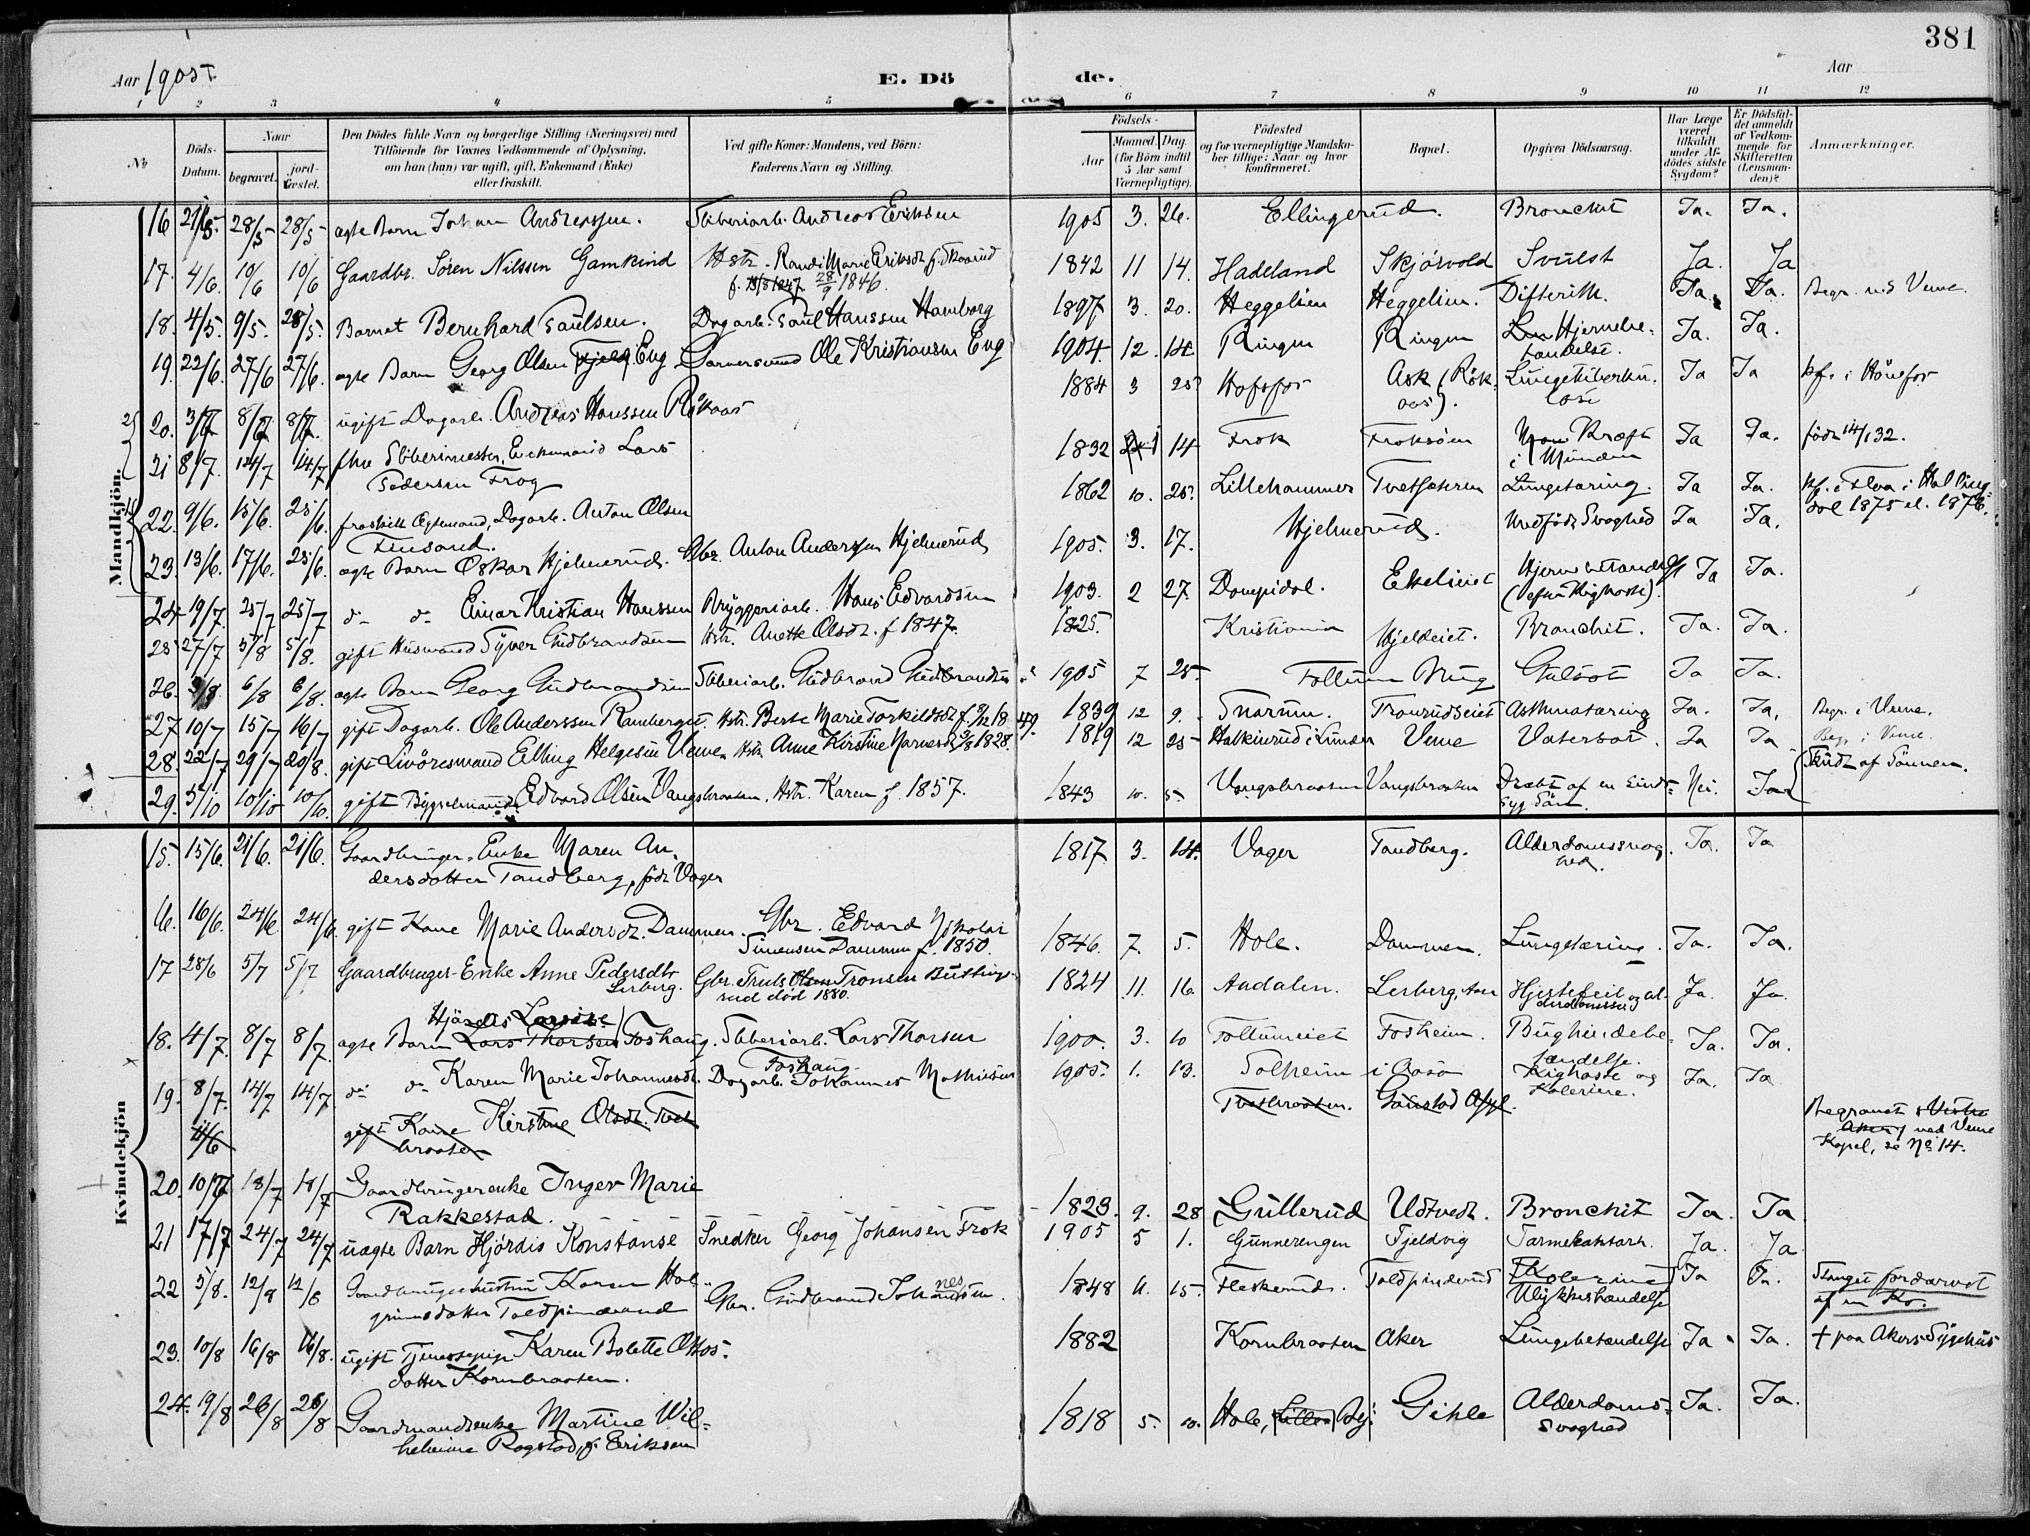 381
Aar 1905
E. Döde.
Aar
1 2 3 4 5 6 7 8 9 10 11 12
No
Döds-Datum.
Naar
begravet.
jord-fæstet.
Den Dödes fulde Navn og borgerlige Stilling (Næringsvei) med
Tilföiende for Voxnes Vedkommende af Oplysning,
om han (hun) var ugift, gift, Enkemand (Enke)
eller fraskilt.
Ved gifte Koner: Mandens, ved Börn:
Faderens Navn og Stilling.
Födsels-
Aar
Maaned. Dag.
(for Börn indtil
5 Aar samt
Værnepligtige).
Födested
og for værnepligtige Mandska-
ber tillige: Naar og hvor
konfirmeret.
Bopæl.
Opgiven Dödsaarsag.
Har Læge
været
tilkaldt
under Af-
dödes sidste
Sygdom?
Er Dödsfal-
det anmeldt
af Vedkom-
mende for
Skifteretten
(Lensman-
den)?
Anmærkninger.
Mandkjön.
16 21/5 28/5 28/5 ægte Barn Johan Andreassen. Sliberiarb. Andreas Eriksen 1905 3. 26. Ellingerud. Bronchit Ja. Ja.
17. 4/6. 10/6 10/6 Gaardbr. Sören Nilssen Gamkind Hstr. Randi Marie Eriksdt. f. Skaarud 1842 11 14. Hadeland Skjörvold Svulst Ja. Ja
28/9 1846.
18. 4/5. 9/5. 28/5. Barnet Bernhard Paulsen. Dagarb. Paul Hanssen Hamborg 1897 3. 20. Heggelien Heggelien. Difterith. Ja. Ja. Begr. ved Veme.
19. 22/6. 27/6 27/6. ægte Barn Georg Olsen Eng Ole Kristiansen Eng 1904 12. 14 Ringen Ringen Hjernebe-
tændelse. Ja. Ja.
20. 3/7 8/7 8/7. ugift Dagarb. Andreas Hanssen Rökaas 1884 3 25? Hofsfos Ask (Rök-
aas). Lungetuberku-
lose Ja Ja kf. i Hönefos
21 8/7. 14/7 14/7 fhv Sliberimester, Enkemand Lars
Pedersen Frog 1832 1 14 Frok Froksöen Kræft
i Munden Ja Ja. födt 14/1 32.
22. 9/6. 15/6. 25/6. fraskilt Ægtemand, Dagarb. Anton Olsen
Finsand. 1862 10. 25? Lillehammer Tvetsæteren Lungetæring. Ja Ja. kf. i Flaa i Halling-
dal 1875 el. 1876.
23. 13/6. 17/6. 25/6. ægte Barn Oskar Hjelmerud. Gbr. Anton Anderssen Hjelmerud 1905. 3. 17. Hjelmerud. Medfödt Svaghed Ja Ja.
24 19/7. 25/7 25/7 do do Einar Kristian Hanssen Bryggeriarb. Hans Edvardsen 1903. 2 27. Dompidal. Ekeleiet (efter Kighoste). Ja Ja.
25 27/7 5/8 5/8. gift Husmand Syver Gudbrandsen Hstr. Anette Olsdt. f 1847. 1825. Kristiania Hjeldeiet. Bronchit. Ja. Ja.
26. 3/8. 6/8 6/8. ægte Barn Georg Gudbrandsen Sliberiarb. Gudbrand Gudbrandsen 1905 7 25. Follum Brug Gulsot Ja Ja.
27 10/7 15/7 16/7 gift Dagarb. Ole Anderssen Ramberget. Hstr. Berte Marie Torkildsdt. 1839 12 9. Snarum. Tronrudseiet Asthmatæring Ja. Ja. Begr. i Veme.
28. 22/7 29/7 20/8. gift Livöresmand Elling Helgesen Veme. Hstr. Anne Kirstine 1828. 1819 12 25 Halkinrud i Lunder Veme Vatersot. Ja Ja Begr. i Veme.
29. 5/10 10/10 10/10. gift Bygselmand Edvard Olsen Vangsbraaten. Hstr. Karen f. 1857. 1843 10. 5. Vangsbraaten Vangsbraaten Dræbt af en sinds-
syg Sön. Nei. Ja af Sönnen.
Kvindekjön
15. 15/6. 21/6. 21/6. Gaardbruger-Enke Maren An-
dersdatter Tandberg, födt Vager 1817 3. 14. Vager Tandberg. Alderdomssvag-
hed. Ja. Ja
16. 16/6. 24/6 24/6. gift Kone Marie Andersdt. Dammen. Gbr. Edvard Nikolai
Simensen Dammen f. 1850. 1846. 7. 5. Hole. Dammen. Lungetæring. Ja. Ja.
17 28/6 5/7 5/7 Gaardbruger-Enke Anne Pedersdtr
Lerberg. Gbr. Truls Olsen Tronsen Buttings-
rud död 1880. 1824 11. 16 Aadalen. Lerberg, Hjertefeil og al-
Ja. Ja.
Hjördis Lovise
18. 4/7. 8/7 8/7. ægte Barn Lars Thorsen Foshaug. Sliberiarb. Lars Thorsen
Foshaug 1900. 3. 10 Follumeiet Fosheim. Bughindebe-
tændelse. Ja. Ja.
19. 8/7. 14/7 14/7. do do Karen Marie Johannesdt. Dagarb. Johannes Mathiesen 1905. 1. 13. Solheim i Aasa Kighoste og
Kolerine. Ja. Ja
11/6 gift Kone Kirstine Olsdt. Tvet-
braaten Tvetbraaten. Gaustad Asyl. Begravet Vestre
Aker, ved Veme
Kapel, se No 14.
20. 10/7 18/7 18/7 Gaardbrugerenke Inger Marie
Rakkestad. 1823. 9. 28 Gullerud Udtvedt. Bronchit Ja. Ja
21 17/7 24/7 24/7 uægte Barn Hjördis Konstanse Snedker Georg Johansen Frok 1905 5 1. Gunnerengen Fjeldvig Tarmekatarh. Ja. Ja
22 5/8. 12/8 12/8 Gaardbrugerhustru Karen Hal-
grimsdatter Toldpinderud Gbr. Gudbrand Johannesen. 1848 11. 15. Fleskerud. Toldpinderud Kolerine
Ulykkeshændelse Ja Ja. Stanget fordærvet
af en Ko.
23. 10/8 16/8 16/8. ugift Tjenestepige Karen Bolette Olsos-
datter Kornbraaten. 1882 Kornbraaten Aker Lungebetændelse Ja Ja. † paa Akers Sygehus
24. 19/8 26/8 26/8 Gaardmandsenke Martine Wil-
helmine Rogstad, f. Eriksen 1818 5. 10. Hole, By. Gihle Alderdoms-
svaghed Ja. Ja.